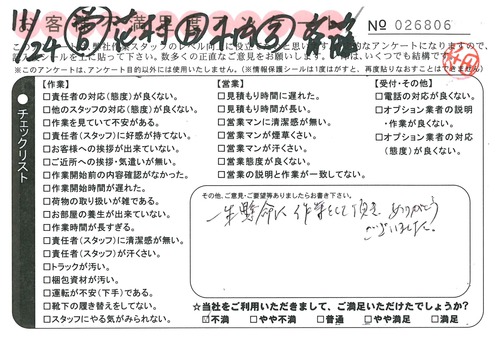 11/24
No 026806
※このアンケートは、アンケート目的以外には使用いたしません。(※情報保護シールは1度はがすと、再度貼りなおすことはできません)
チェックリスト
【作業】
□責任者の対応(態度)が良くない。
□他のスタッフの対応(態度)が良くない。
□作業を見ていて不安がある。
□責任者(スタッフ)に好感が持てない。
□お客様への挨拶が出来ていない。
□ご近所への挨拶・気遣いが無い。
□作業開始前の内容確認がなかった。
□作業開始時間が遅れた。
□荷物の取り扱いが雑である。
□お部屋の養生が出来ていない。
□作業時間が長すぎる。
□責任者(スタッフ)に清潔感が無い。
□責任者(スタッフ)が汗くさい。
□トラックが汚い。
□梱包資材が汚い。
□運転が不安(下手)である。
□靴下の履き替えをしてない。
□スタッフにやる気がみられない。
【営業】
□見積もり時間に遅れた。
□見積もり時間が長い。
□営業マンに清潔感が無い。
□営業マンが煙草くさい。
□営業マンが汗くさい。
□営業態度が良くない。
□営業の説明と作業が一致してない。
【受付・その他】
□電話の対応が良くない。
□オプション業者の説明
・作業が良くない。
□オプション業者の対応
(態度)が良くない。
その他、ご意見・ご要望等ありましたらお書き下さい。
一生懸命に作業をして頂き ありがとう
ございました。
☆当社をご利用いただきまして、ご満足いただけたでしょうか?
□不満 □やや不満 □普通 □やや満足 □満足